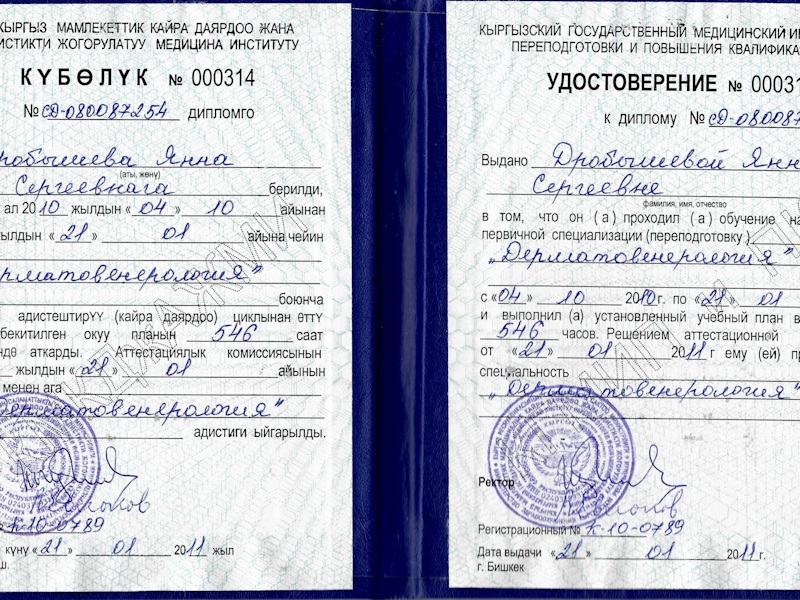 КЫРГЫЗ МАМЛЕКЕТТИК КАЙРА ДАЯРДОО ЖАНА
ИСТИКТИ ЖОГОРУЛАТУУ МЕДИЦИНА ИНСТИТУТУ
КҮБӨЛҮК № 000314
№ СД-080087254 дипломго
робышева Янна
(аты, жөнү)
Сергеевнага берилди,
ал 2010 жылдын «04» 10 айынан
ылдын «21» 01 айына чейин
ерматовенерология"
боюнча
адистештирүү (кайра даярдоо) циклынан өттү
бекитилген окуу планын 546 саат
нде аткарды. Аттестациялык комиссиясынын
жылдын «21» 01 айынын
менен ага
Дерматовенерология"
адистиги ыйгарылды.
К-10-0789
күнү «21» 01 2011 жыл
КЫРГЫЗСКИЙ ГОСУДАРСТВЕННЫЙ МЕДИЦИНСКИЙ ИН
ПЕРЕПОДГОТОВКИ И ПОВЫШЕНИЯ КВАЛИФИКА
УДОСТОВЕРЕНИЕ № 00031
к диплому № СД-080087
Выдано Дробышевой Янн
Сергеевне
фамилия, имя, отчество
в том, что он (а) проходил (а) обучение на
первичной специализации (переподготовку)
„Дерматовенерология"
с «04» 10 2010г. по «21» 01
и выполнил (а) установленный учебный план в
546 часов. Решением аттестационной
от «21» 01 2011 г ему (ей) пр
специальность
„Дерматовенерология"
Ректор
Регистрационный № К-10-0789
Дата выдачи «21» 01 2011г.
г. Бишкек